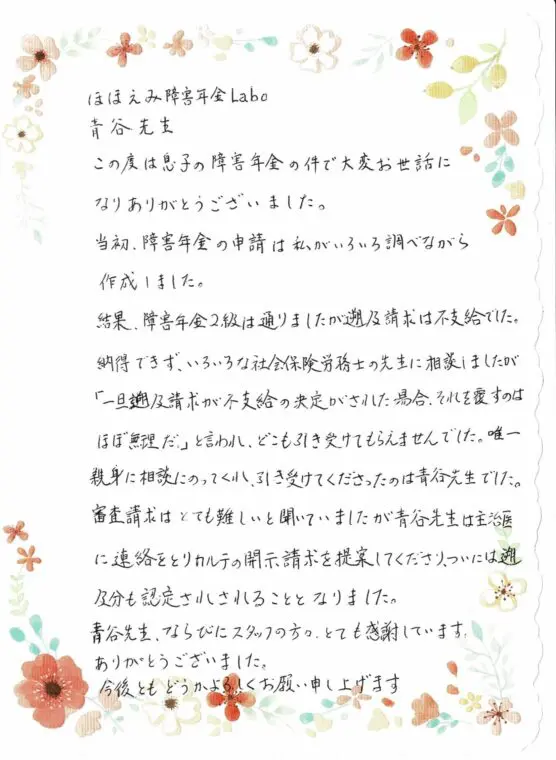 ほほえみ障害年金Labo
青谷先生
この度は息子の障害年金の件で大変お世話に
なりありがとうございました。
当初、障害年金の申請は私がいろいろ調べながら
作成しました。
結果、障害年金2級は通りましたが遡及請求は不支給でした。
納得できず、いろいろな社会保険労務士の先生に相談しましたが
「一旦遡及請求が不支給の決定がされた場合、それを覆すのは
ほぼ無理だ」と言われ、どこも引き受けてもらえませんでした。唯一
親身に相談にのってくれ、引き受けてくださったのは青谷先生でした。
審査請求はとても難しいと聞いていましたが青谷先生は主治医
に連絡をとりカルテの開示請求を提案してくださり、ついには遡
及分も認定されされることとなりました。
青谷先生、ならびにスタッフの方々、とても感謝しています。
ありがとうございました。
今後ともどうかよろしくお願い申し上げます